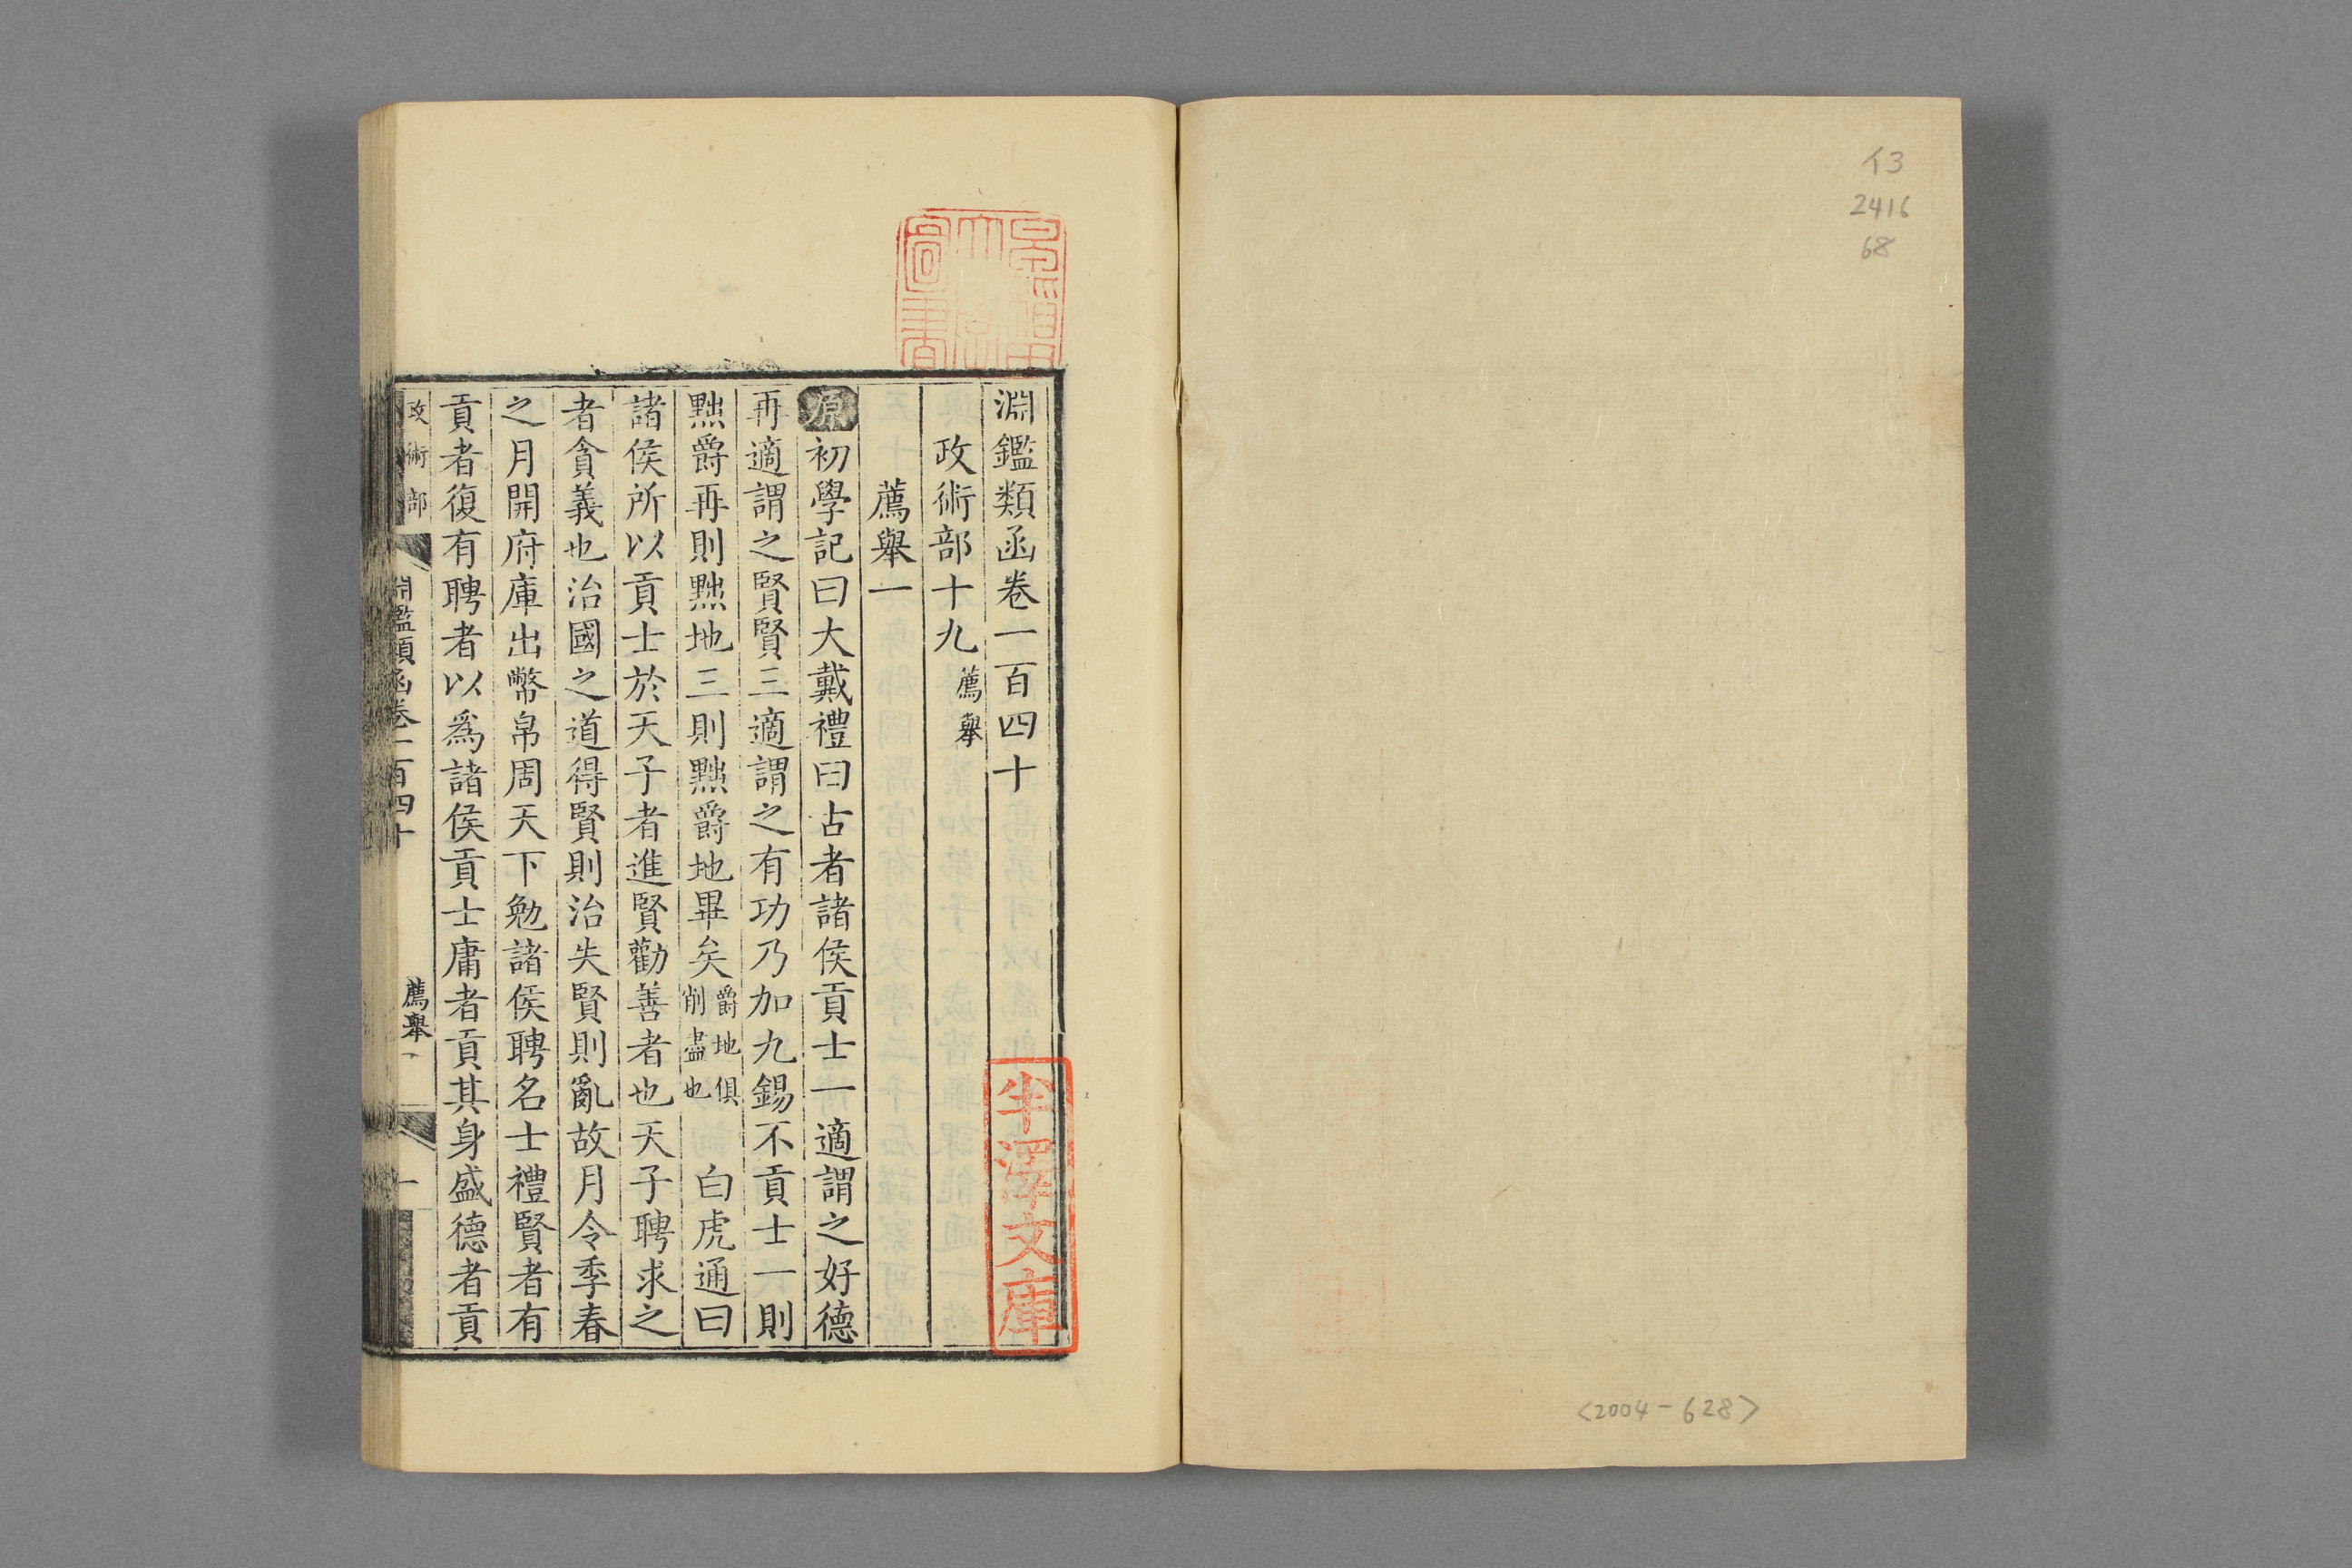 イ3
2416
68
<2004-628>
淵鑑類函卷一百四十
政術部十九 薦舉
薦舉一
原初學記曰大戴禮曰古者諸侯貢士一適謂之好德
再適謂之賢賢三適謂之有功乃加九錫不貢士一則
黜爵再則黜地三則黜爵地畢矣爵地俱削盡也 白虎通曰
諸侯所以貢士於天子者進賢勸善者也天子聘求之
者貪義也治國之道得賢則治失賢則亂故月令季春
之月開府庫出幣帛周天下勉諸侯聘名士禮賢者有
貢者復有聘者以爲諸侯貢士庸者貢其身盛德者貢
政術部 淵鑑類函卷一百四十 薦舉一 一
半澤文庫
圖書